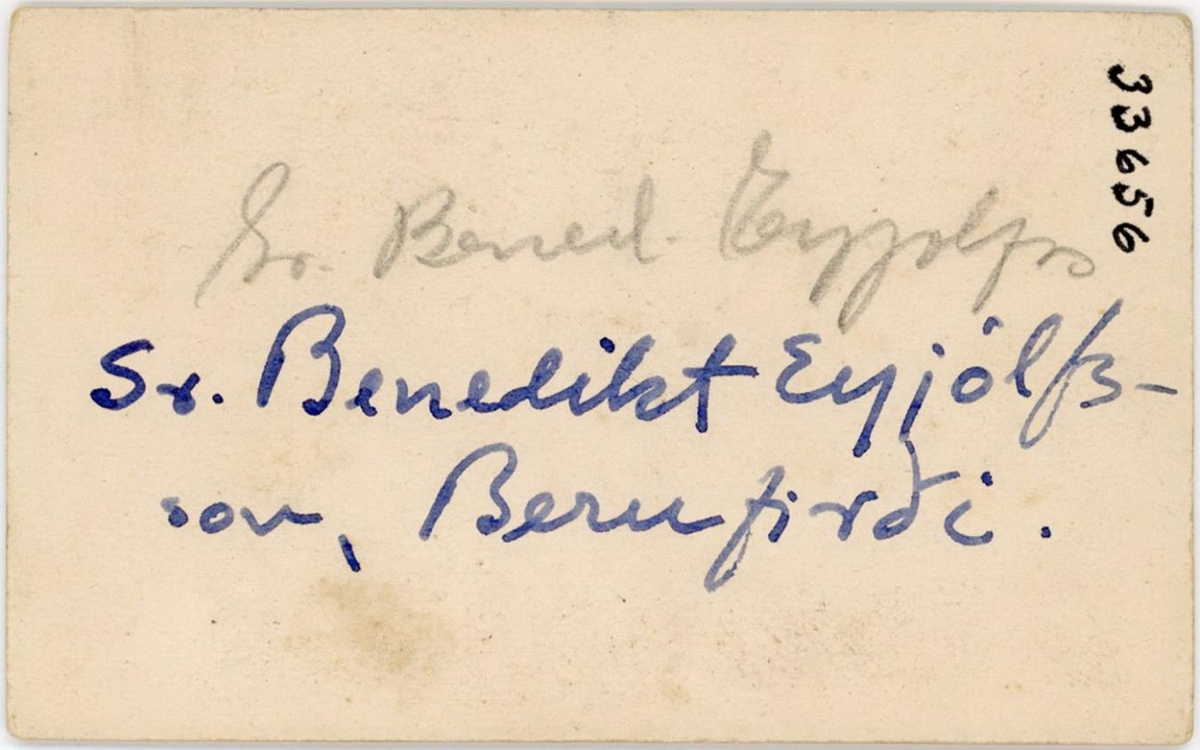 33656
Sr. Bened. Eyjolfss
Sr. Benedikt Eyjólfs-
son, Berufirði.